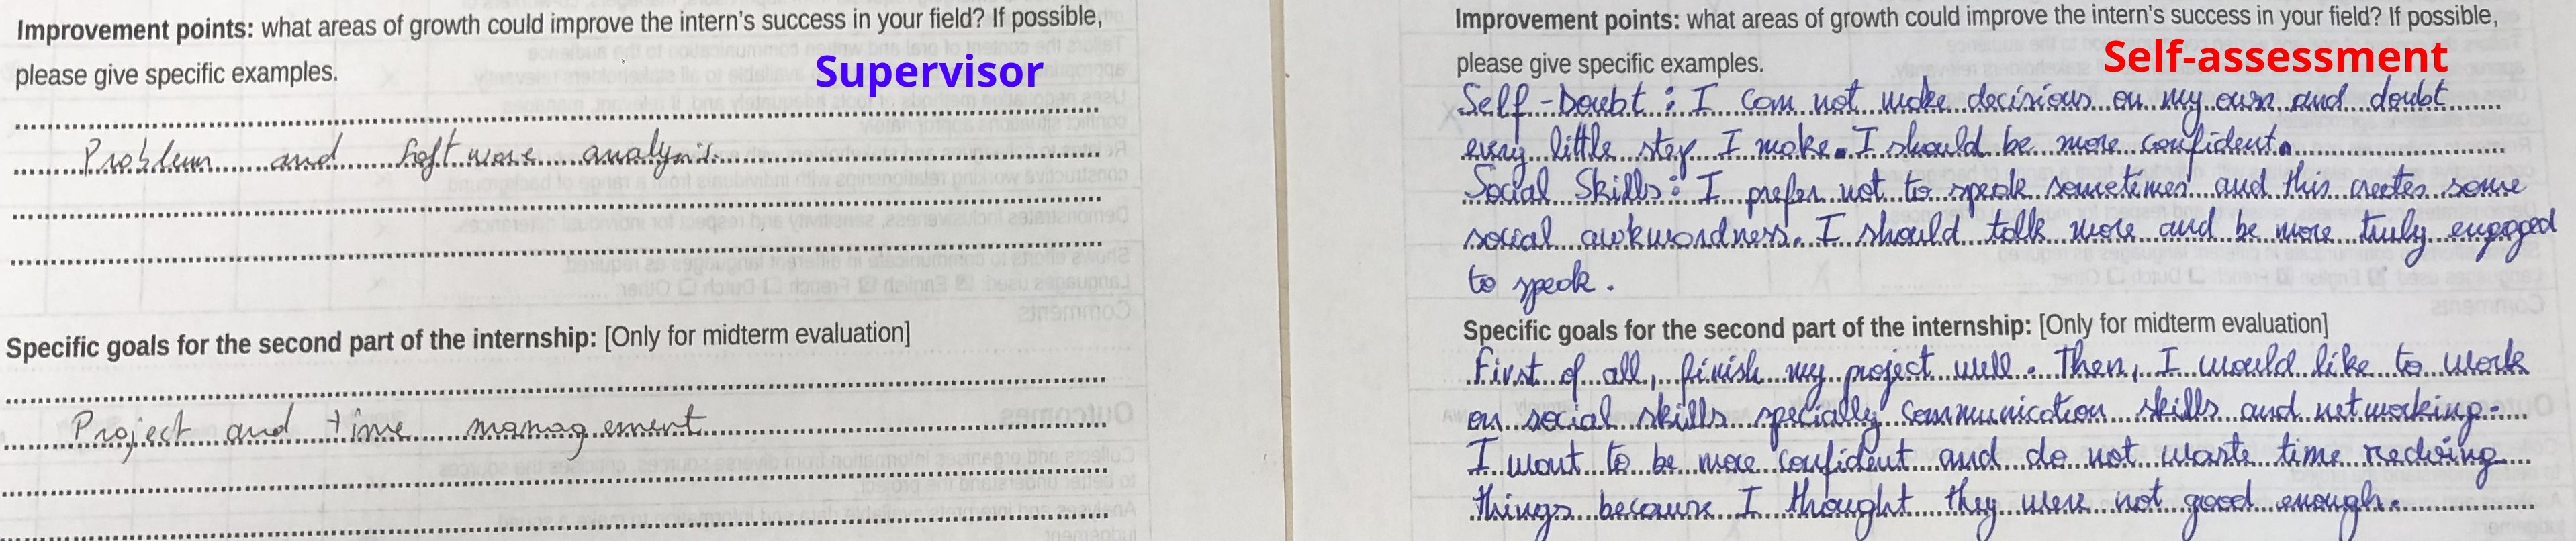 Improvement points: what areas of growth could improve the intern's success in your field? If possible,
please give specific examples.
Supervisor
Problem and software analysis.
Specific goals for the second part of the internship: [Only for midterm evaluation]
Project and time management
Improvement points: what areas of growth could improve the intern's success in your field? If possible,
please give specific examples.
Self-assessment
Self-Doubt: I can not make decisions on my own and doubt
every little step I make. I should be more confident.
Social Skills: I prefer not to speak sometimes and this creates some
social awkwardness. I should talk more and be more truly engaged
to speak.
Specific goals for the second part of the internship: [Only for midterm evaluation]
First of all, finish my project well. Then, I would like to work
on social skills specially communication skills and networking.
I want to be more confident and do not waste time redoing
things because I thought they were not good enough.